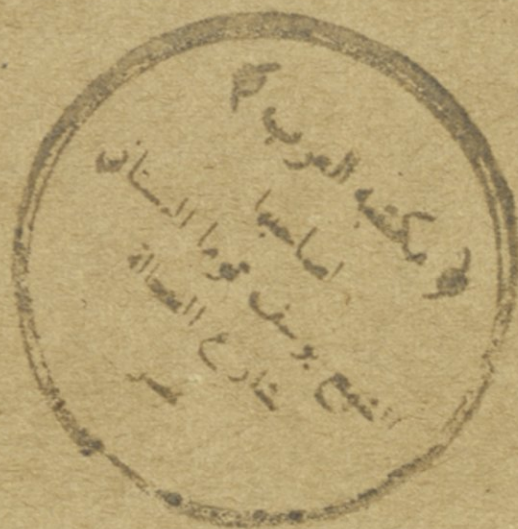 ﴿ مكتبة العرب ﴾
لصاحبها
الشيخ يوسف توما البستاني
شارع الفجالة
مصر